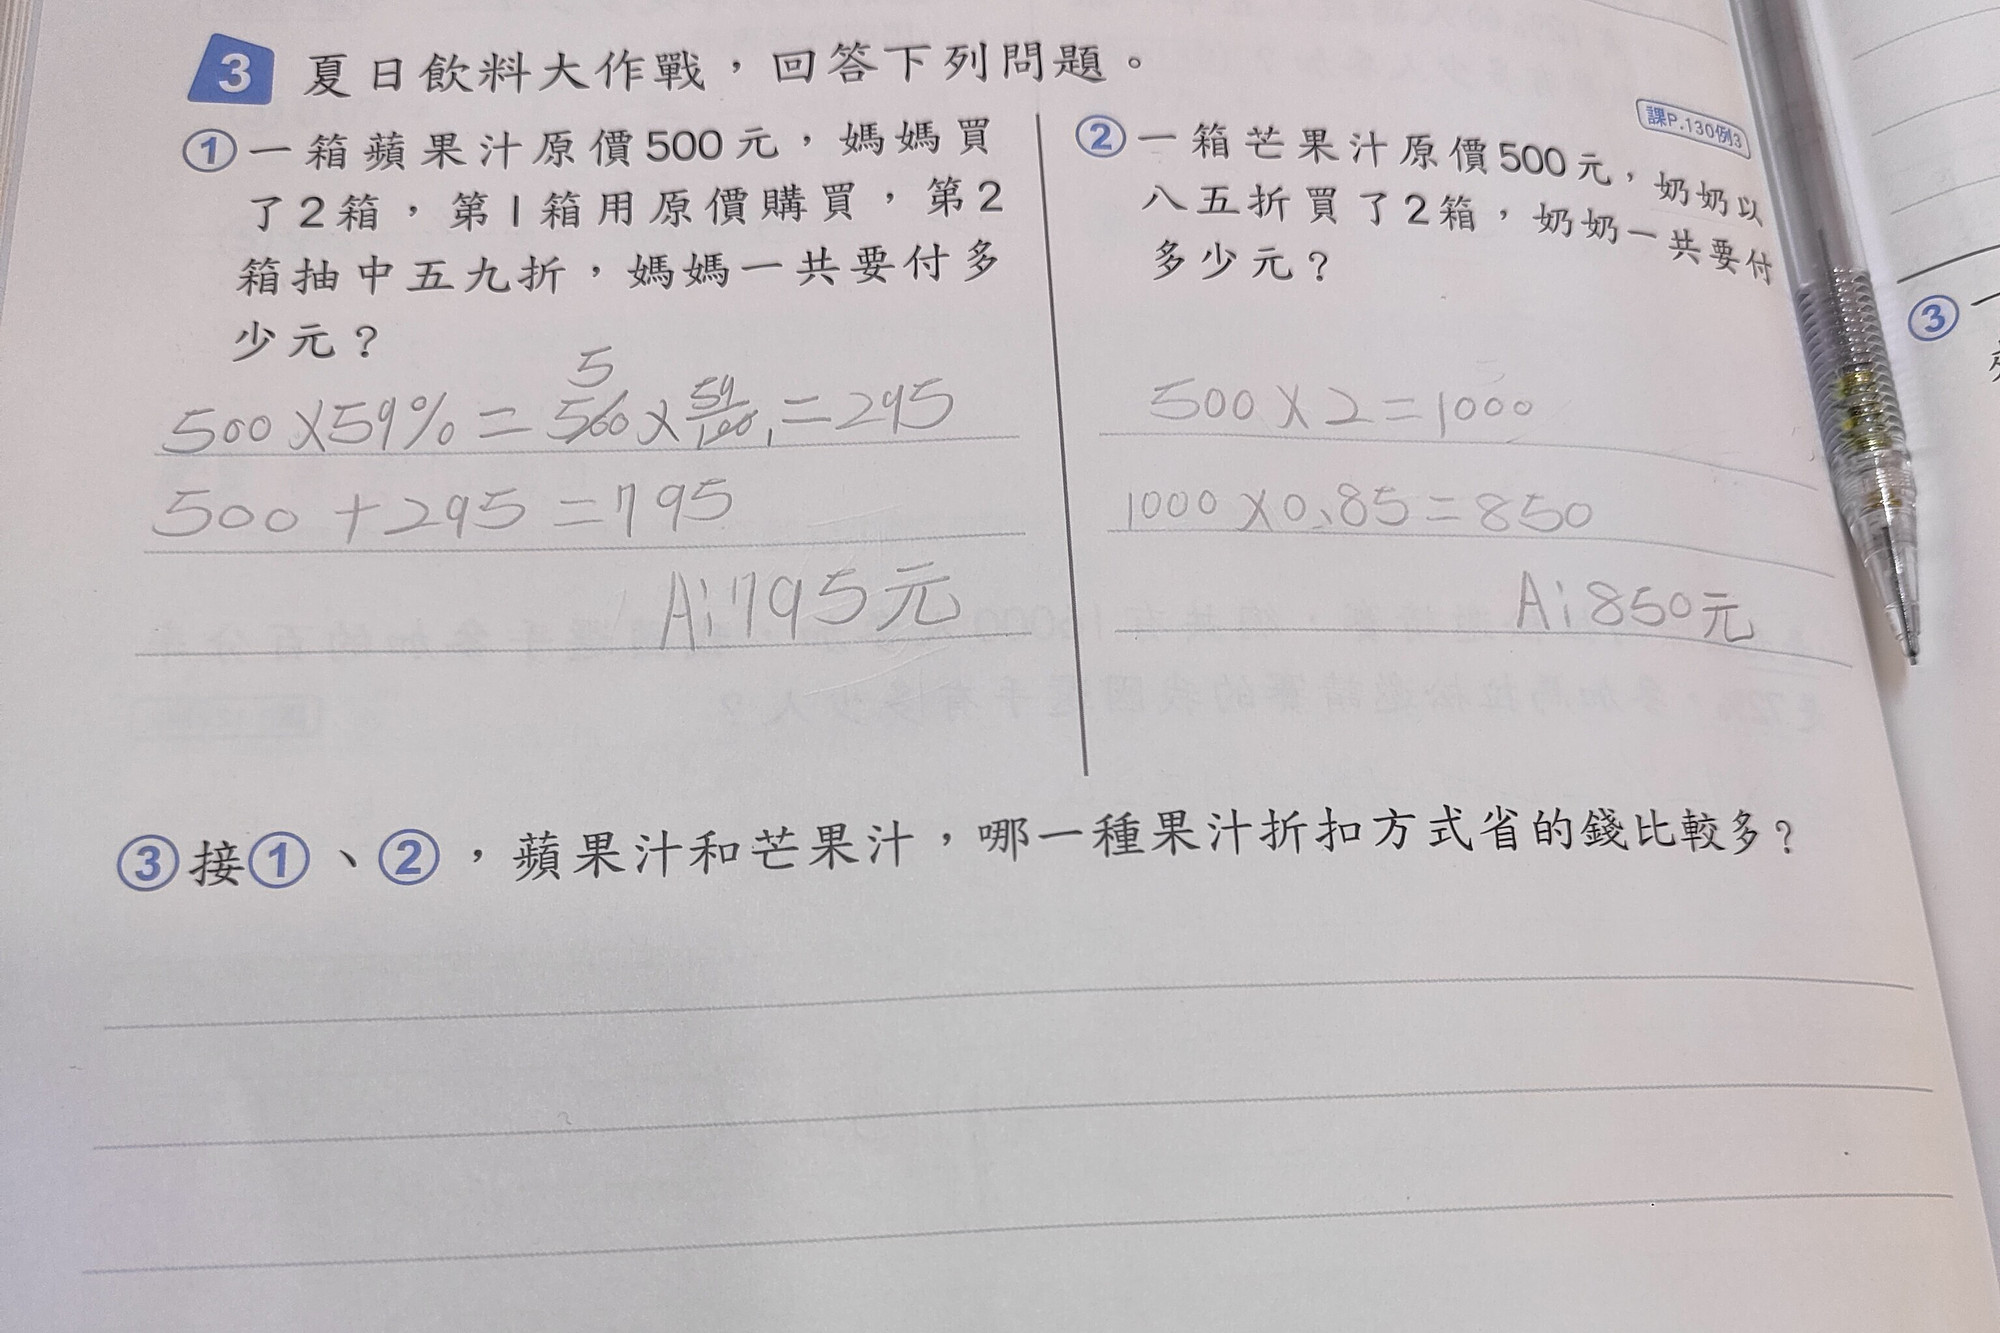 3 夏日飲料大作戰，回答下列問題。
①一箱蘋果汁原價500元，媽媽買
了2箱，第1箱用原價購買，第2
箱抽中五九折，媽媽一共要付多
少元？
5
500×59%=500×59/100 1=295
500+295=795
A:795元
課P.130例3
②一箱芒果汁原價500元，奶奶以
八五折買了2箱，奶奶一共要付
多少元？
500×2=1000
1000×0.85=850
A:850元
③接①、②，蘋果汁和芒果汁，哪一種果汁折扣方式省的錢比較多？
③